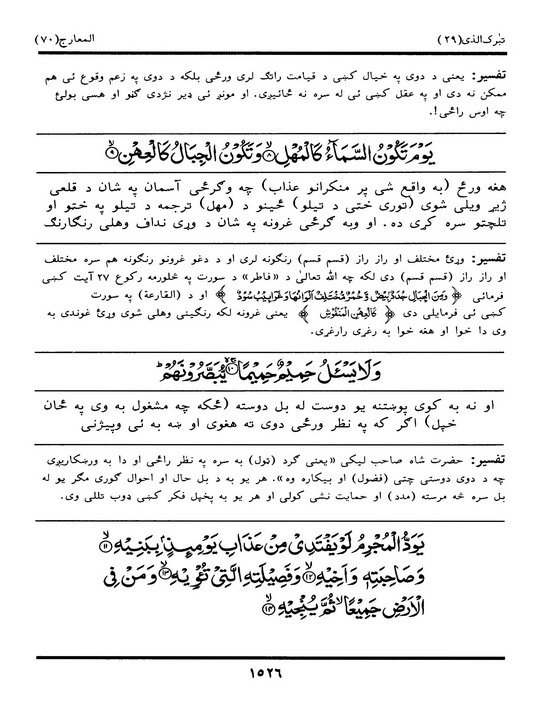 تبٰرک‌الذی(۲۹) المعارج(۷۰)
تفسیر: یعنی د دوی په خیال کښی د قیامت راتگ لری ورځی بلکه د دوی په زعم وقوع ئی هم
ممکن نه دی او په عقل کښی ئی له سره نه ځائیږی. او مونږ ئی ډیر نژدی گڼو او هسی بولئ
چه اوس راځی!.
يَوۡمَ تَكُوۡنُ السَّمَآءُ كَالۡمُهۡلِ ۙ‏﴿۸﴾ وَتَكُوۡنُ الۡجِبَالُ كَالۡعِهۡنِ ۙ‏﴿۹﴾
هغه ورځ (به واقع شی پر منکرانو عذاب) چه وگرځی آسمان په شان د قلعی
ژیړ ویلی شوی (توری ختی د تیلو) ځینو د (مهل) ترجمه د تیلو په ختو او
تلچتو سره کړی ده. او وبه گرځی غرونه په شان د وړی نداف وهلی رنگارنگ
تفسیر: وړئ مختلف او راز راز (قسم قسم) رنگونه لری او د دغو غرونو رنگونه هم سره مختلف
او راز راز (قسم قسم) دی لکه چه الله تعالیٰ د «فاطر» د سورت په څلورمه رکوع ۲۷ آیت کښی
فرمائی ﴿ وَمِنَ الۡجِبَالِ جُدَدٌۢ بِيۡضٌ وَّحُمۡرٌ مُّخۡتَلِفٌ اَلۡوَانُهَا وَغَرَابِيۡبُ سُوۡدٌ ﴾ او د (القارعة) په سورت
کښی ئی فرمایلی دی ﴿ كَالۡعِهۡنِ الۡمَنۡفُوۡشِ ﴾ یعنی غرونه لکه رنگینی وهلی شوی وړی غوندی به
وی دا خوا او هغه خوا به رغړی رارغړی.
وَلَا يَسۡـَٔلُ حَمِيۡمٌ حَمِيۡمًا ۖۚ‏﴿۱۰﴾ يُّبَصَّرُوۡنَهُمۡ ؕ
او نه به کوی پوښتنه یو دوست له بل دوسته (ځکه چه مشغول به وی په ځان
خپل) اگر که په نظر ورځی دوی ته هغوی او ښه به ئی وپیژنی
تفسیر: حضرت شاه صاحب لیکی «یعنی گرد (ټول) به سره په نظر راځی او دا به ورښکاریږی
چه د دوی دوستی چتی (فضول) او بیکاره وه». هر یو به د بل حال او احوال گوری مگر یو له
بل سره څه مرسته (مدد) او حمایت نشی کولی او هر یو به پخپل فکر کښی ډوب تللی وی.
يَوَدُّ الۡمُجۡرِمُ لَوۡ يَفۡتَدِىۡ مِنۡ عَذَابِ يَوۡمِئِذٍۢ بِبَنِيۡهِ ۙ‏﴿۱۱﴾
وَصَاحِبَتِهٖ وَاَخِيۡهِ ۙ‏﴿۱۲﴾ وَفَصِيۡلَتِهِ الَّتِىۡ تُـــْٔوِيۡهِ ۙ‏﴿۱۳﴾ وَمَنۡ فِى
الۡاَرۡضِ جَمِيۡعًا ۙ ثُمَّ يُنۡجِيۡهِ ۙ‏﴿۱۴﴾
۱۵۲۶